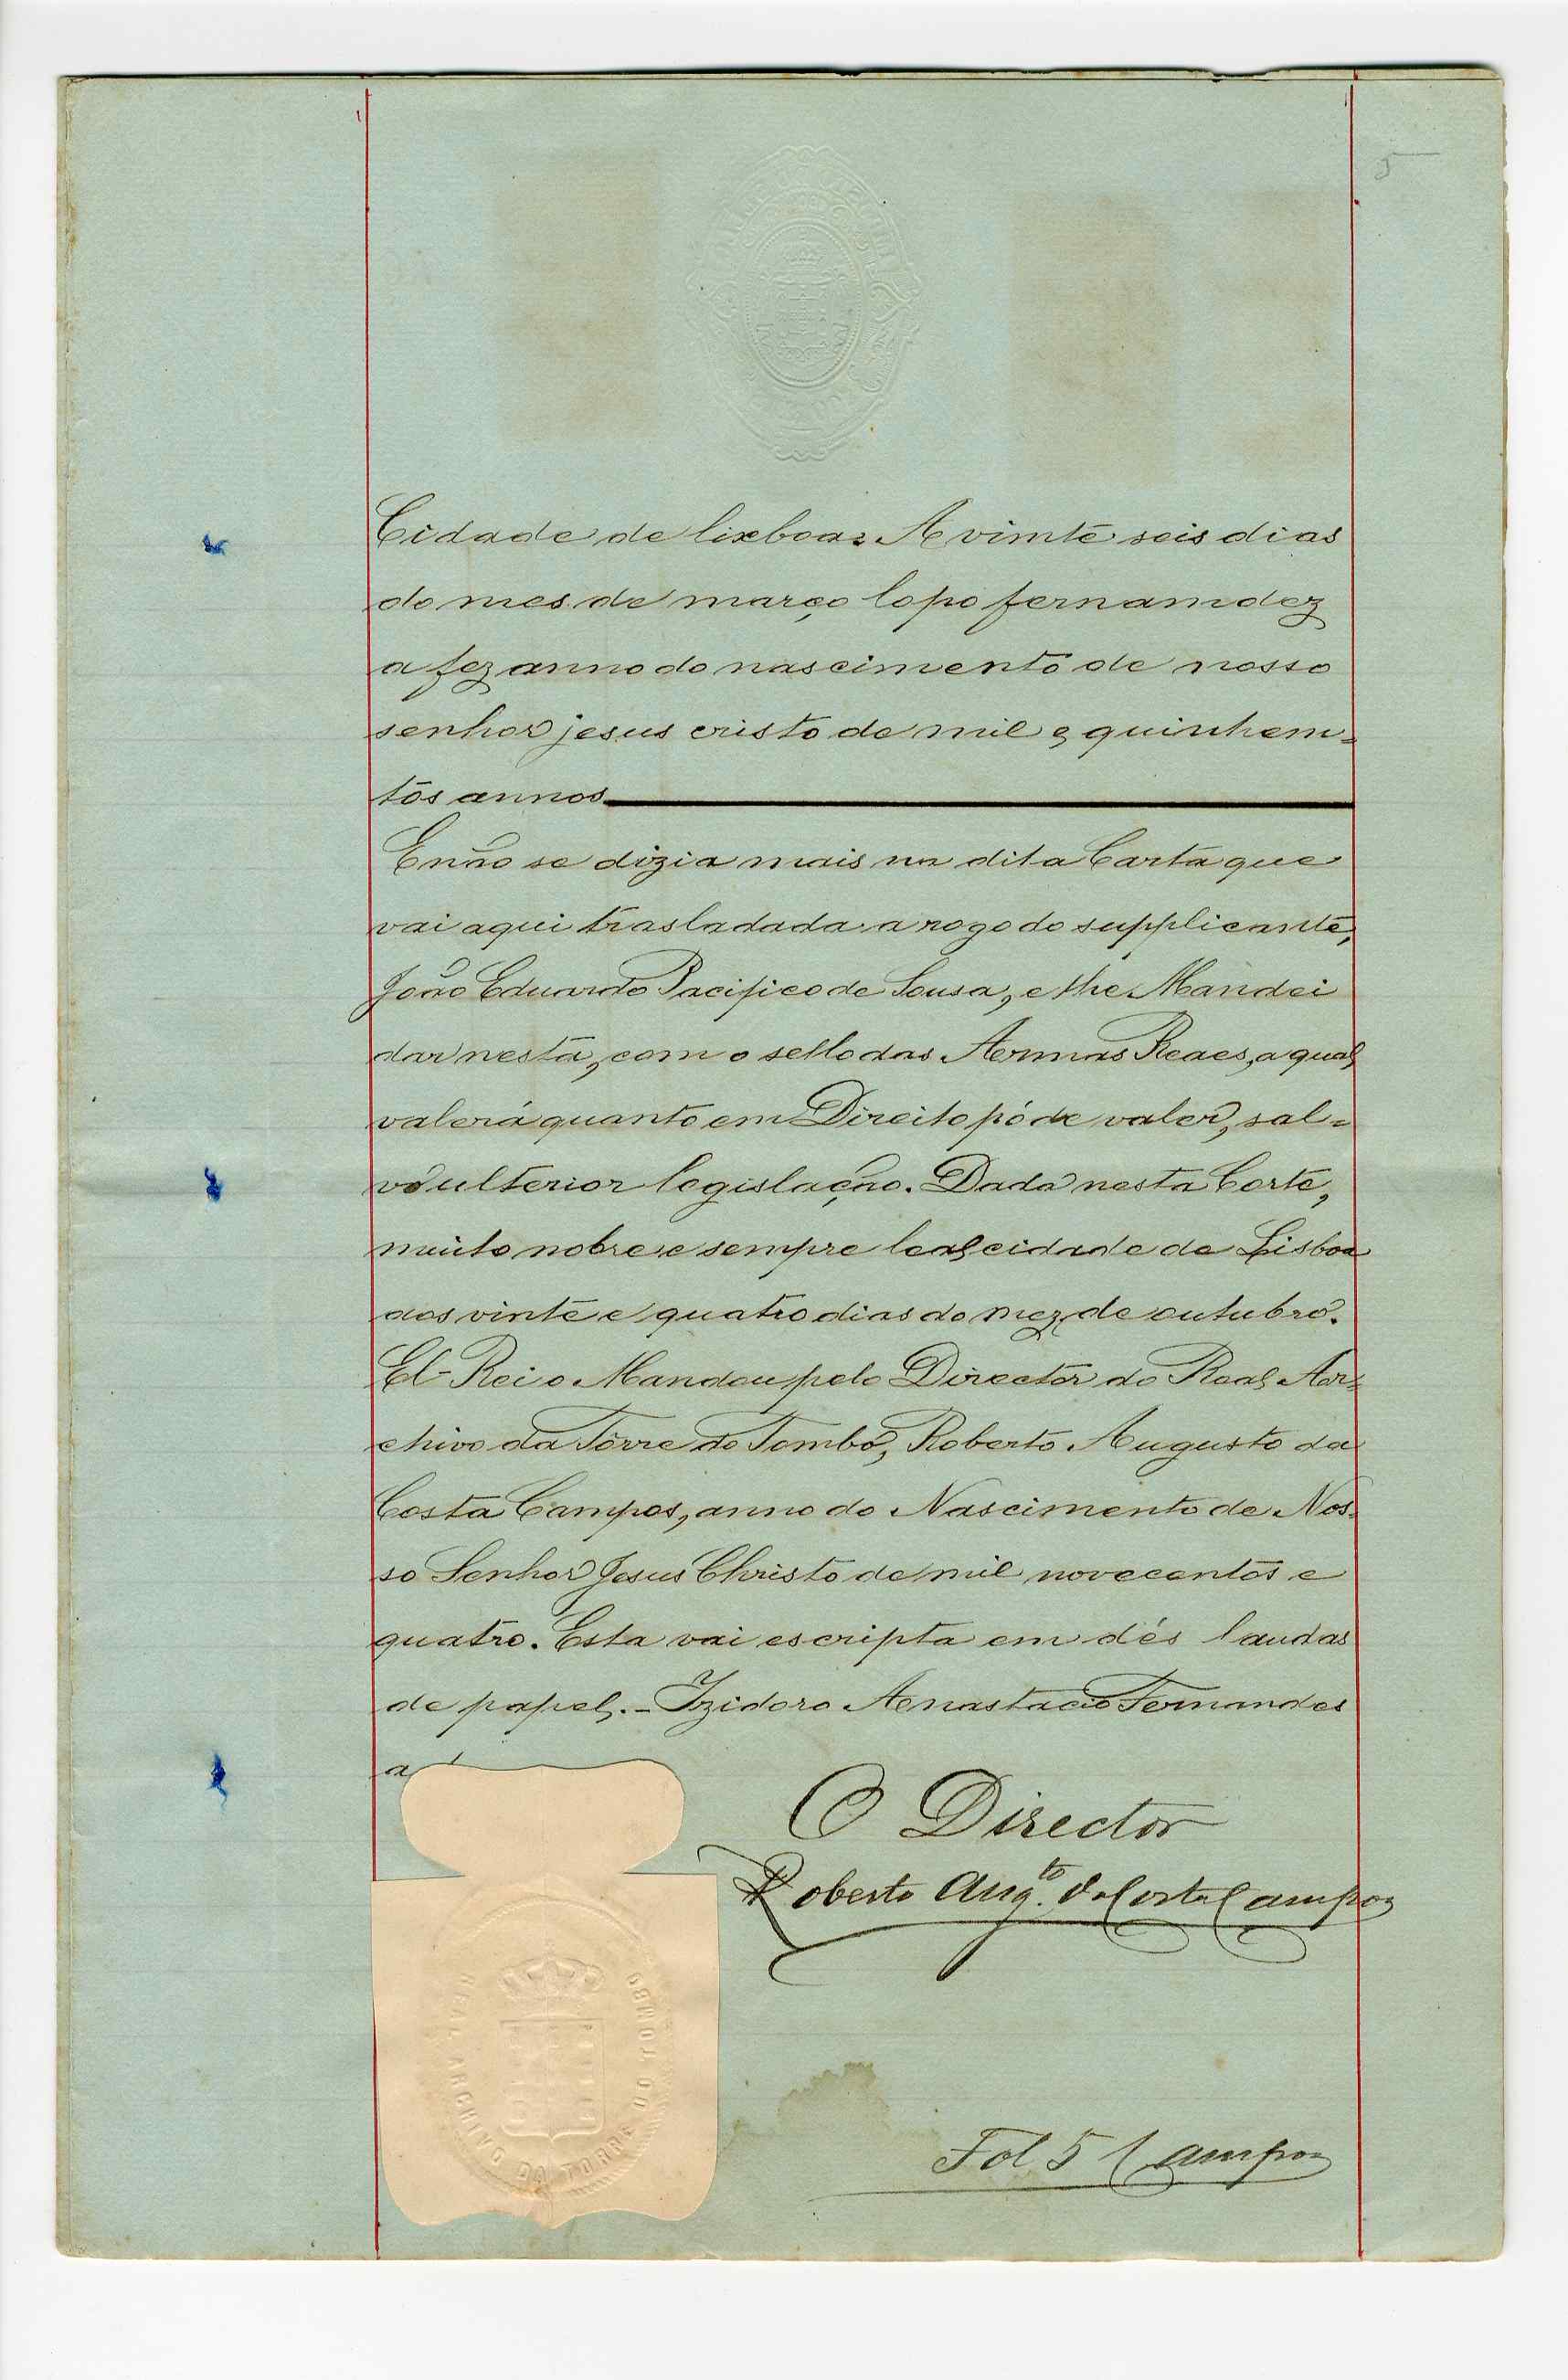 5
Cidade de lixboa. A vimte seis dias
do mes de março lopo fernamdez
a fez anno do nascimento de nosso
senhor jesus cristo de mil e quinhem=
tos annos
E não se dizia mais na dita Carta que
vai aqui trasladada a rogo do supplicante,
João Eduardo Pacifico de Sousa, e lhe Mandei
dar nesta, com o sello das Armas Reaes, a qual
valerá quanto em Direito póde valer, sal=
vo ulterior legislação. Dada nesta Corte,
muito nobre e sempre leal cidade de Lisboa
aos vinte e quatro dias do mez de outubro.
El-Rei o Mandou pelo Director do Real Ar=
chivo da Torre do Tombo, Roberto Augusto da
Costa Campos, anno do Nascimento de Nos=
so Senhor Jesus Christo de mil novecentos e
quatro. Esta vai escripta em dés laudas
de papel. - Izidoro Anastacio Fernandes
a
O Director
Roberto Aug.to da Costa Campos
REAL ARCHIVO DA TORRE DO TOMBO
Fol 5 Campos